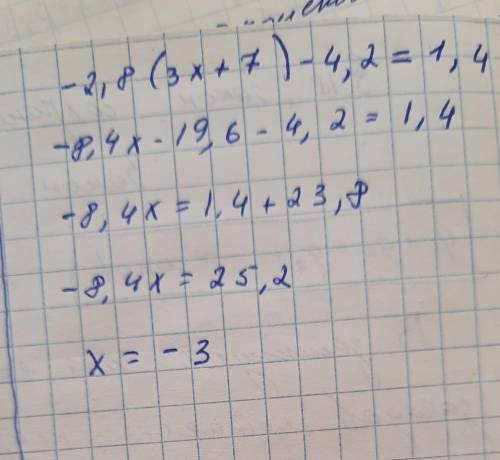 -2,8(3x+7)-4,2=1,4
-8,4x-19,6-4,2=1,4
-8,4x=1,4+23,8
-8,4x=25,2
x=-3